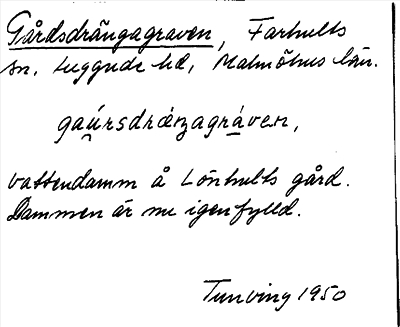 Gårdsdrängagraven, Farhults
sn. Luggude hd, Malmöhus län.
gaúrsdræŋagráven,
vattendamm å Lönhults gård.
Dammen är nu igenfylld.
Tunving 1950